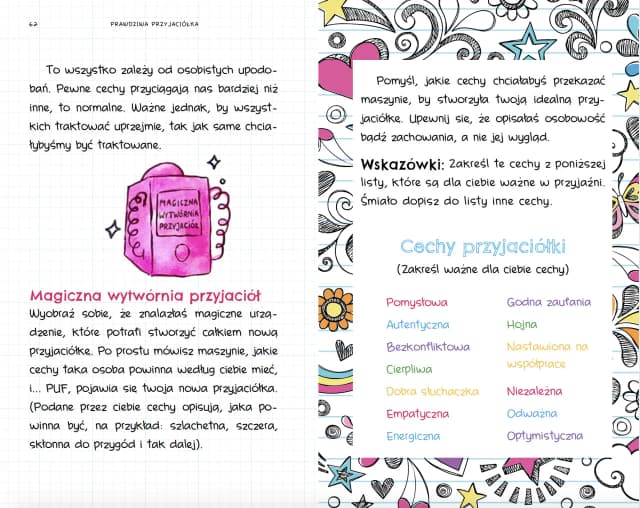 62
PRAWDZIWA PRZYJACIÓŁKA
To wszystko zależy od osobistych upodo-
bań. Pewne cechy przyciągają nas bardziej niż
inne, to normalne. Ważne jednak, by wszyst-
kich traktować uprzejmie, tak jak same chcia-
łybyśmy być traktowane.
MAGICZNA
WYTWÓRNIA
PRZYJACIÓŁ
Magiczna wytwórnia przyjaciół
Wyobraź sobie, że znalazłaś magiczne urzą-
dzenie, które potrafi stworzyć całkiem nową
przyjaciółkę. Po prostu mówisz maszynie, jakie
cechy taka osoba powinna według ciebie mieć,
i... PUF, pojawia się twoja nowa przyjaciółka.
(Podane przez ciebie cechy opisują, jaka po-
winna być, na przykład: szlachetna, szczera,
skłonna do przygód i tak dalej).
Pomyśl, jakie cechy chciałabyś przekazać
maszynie, by stworzyła twoją idealną przy-
jaciółkę. Upewnij się, że opisałaś osobowość
bądź zachowania, a nie jej wygląd.
Wskazówki: Zakreśl te cechy z poniższej
listy, które są dla ciebie ważne w przyjaźni.
Śmiało dopisz do listy inne cechy.
Cechy przyjaciółki
(Zakreśl ważne dla ciebie cechy)
Pomysłowa
Autentyczna
Bezkonfliktowa
Cierpliwa
Dobra słuchaczka
Empatyczna
Energiczna
Godna zaufania
Hojna
Nastawiona na
współpracę
Niezależna
Odważna
Optymistyczna